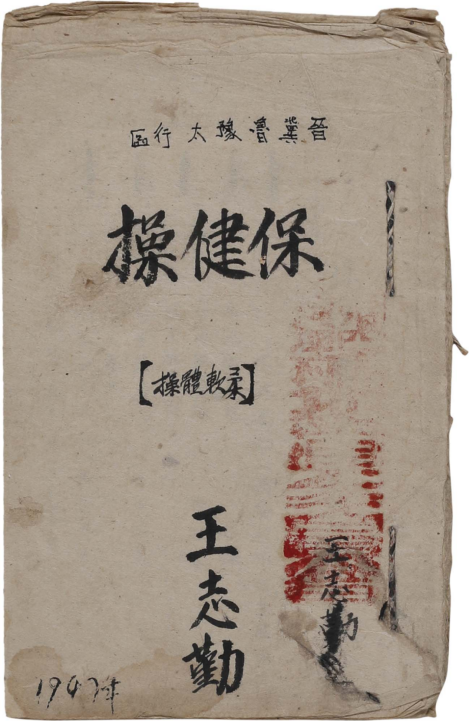 晋冀魯豫太行區
保健操
[柔軟體操]
王志勤
王志勤
1947年